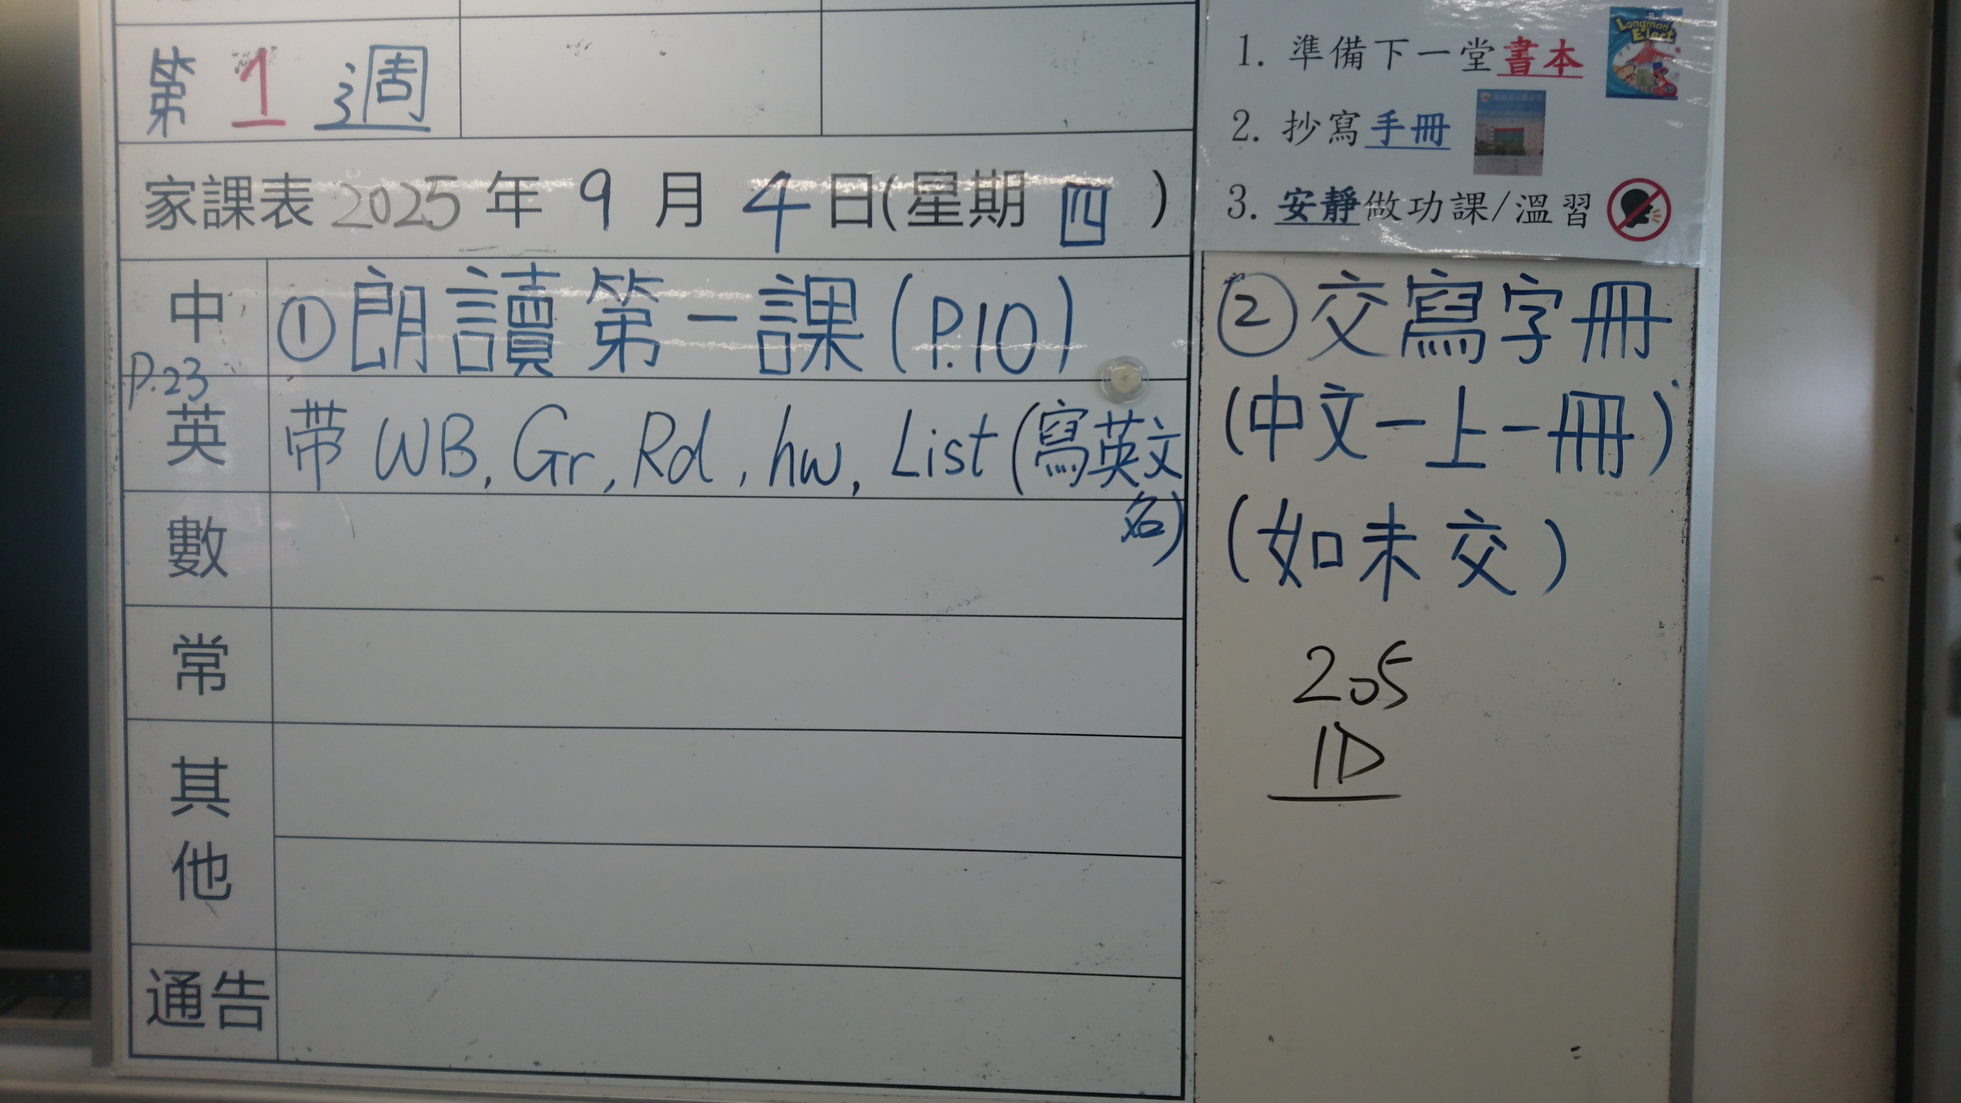 第 1 週
家課表 2025 年 9 月 4 日(星期 四 )
中 ①朗讀第一課(P.10)
P.23
英 帶 WB, Gr, Rd, hw, List (寫英文
名)
數
常
其
他
通告
1. 準備下一堂書本
Longman
Elect
2. 抄寫手冊
3. 安靜做功課/溫習
②交寫字冊
(中文一上一冊)
(如未交)
205
1D